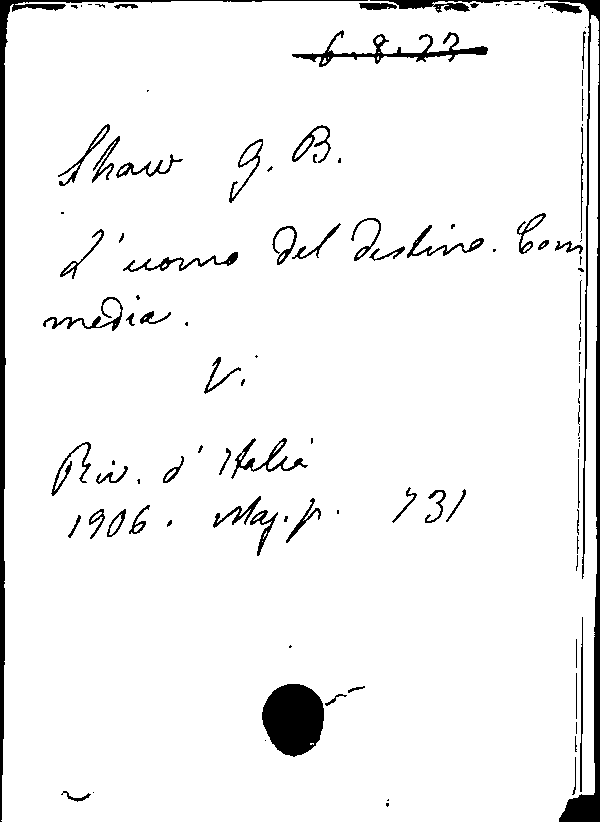 6.8.23
Shaw G. B.
L'uomo del destino. Com
media.
V.
Riv. d' Italia
1906. Mag. p. 731